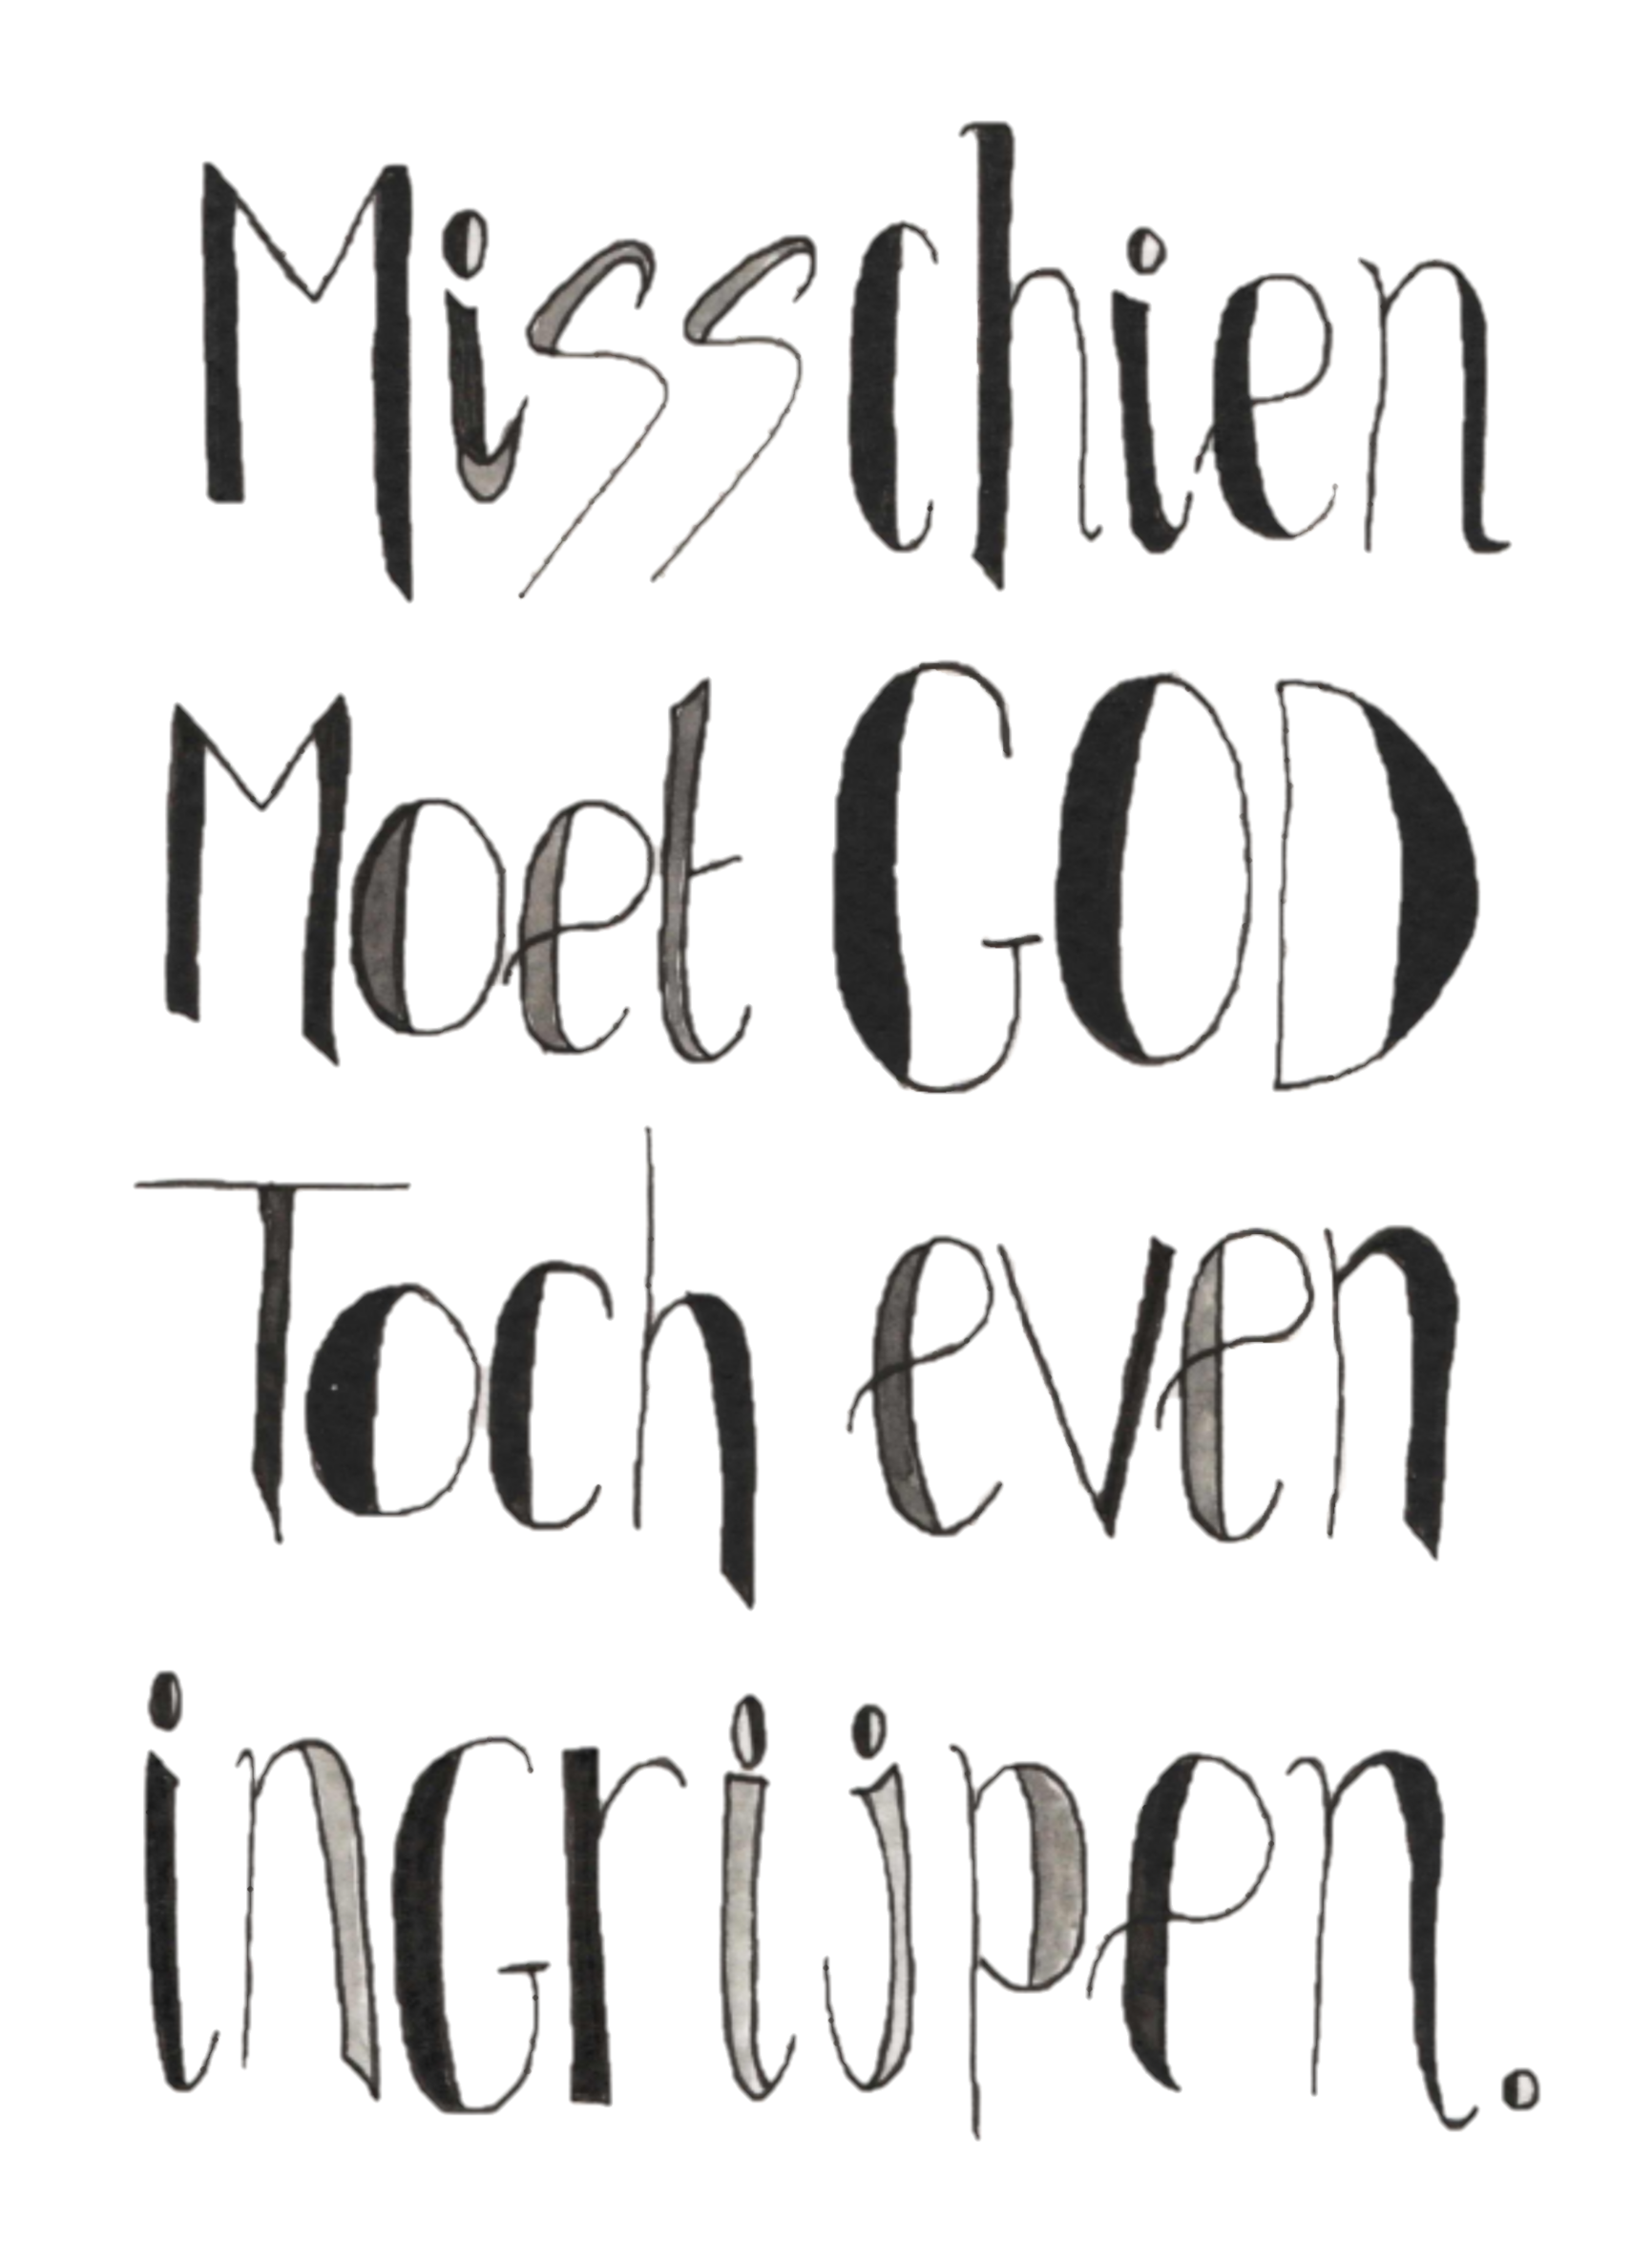 Misschien
Moet GOD
Toch even
inGrijpen.